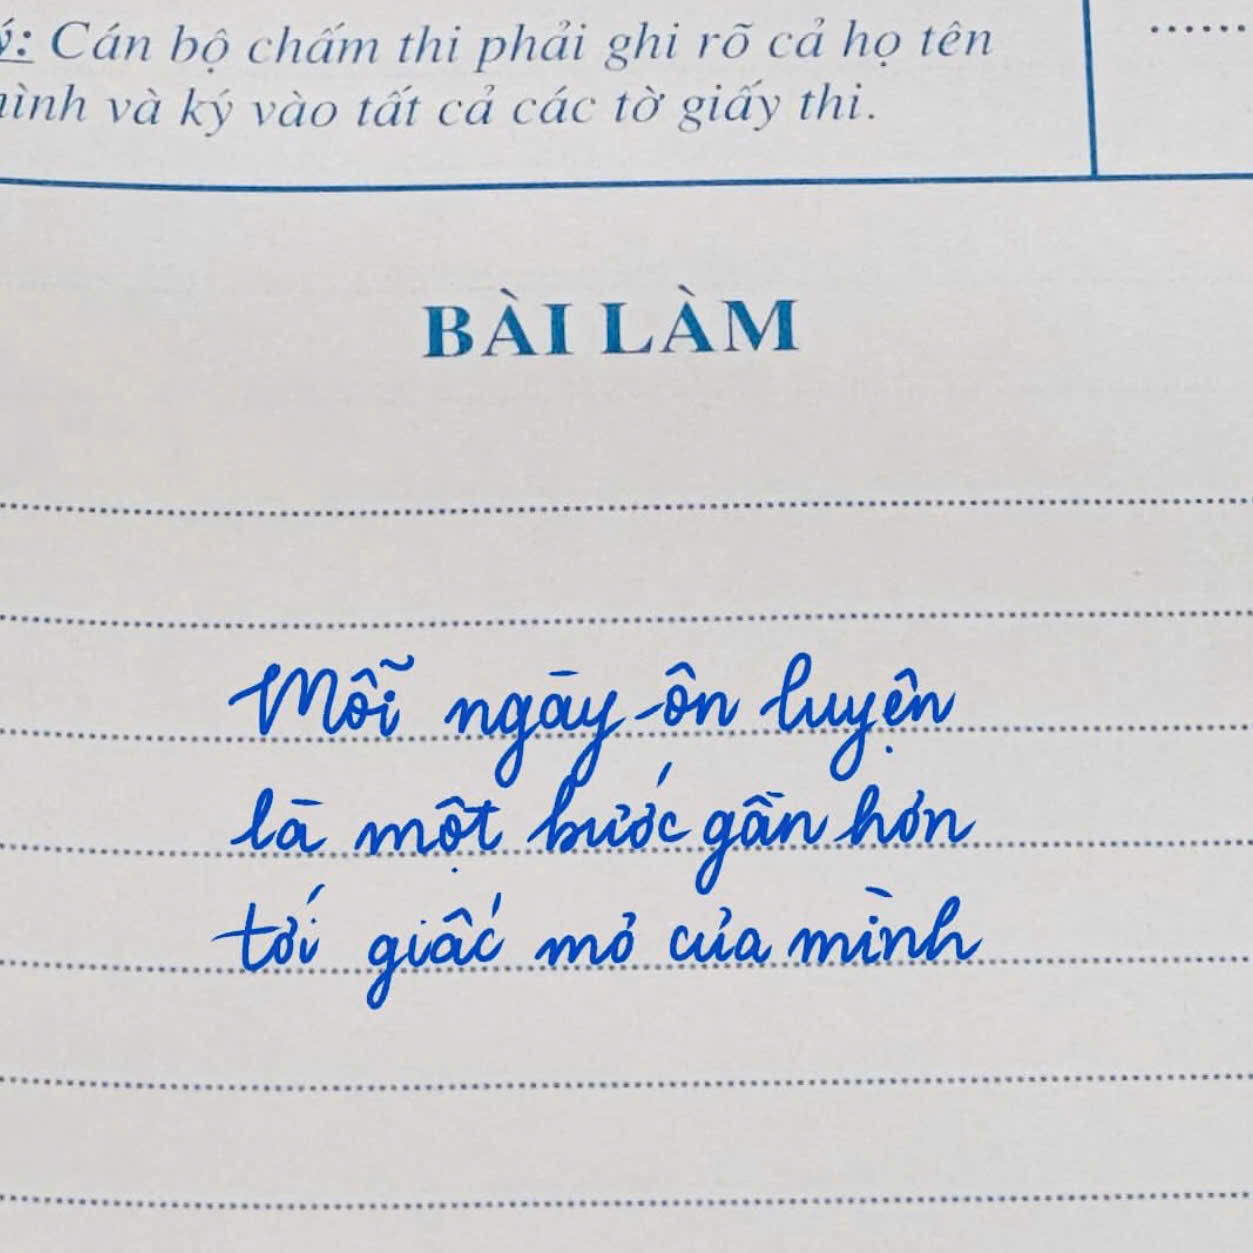 ý: Cán bộ chấm thi phải ghi rõ cả họ tên
mình và ký vào tất cả các tờ giấy thi.
BÀI LÀM
Mỗi ngày ôn luyện
là một bước gần hơn
tới giấc mơ của mình